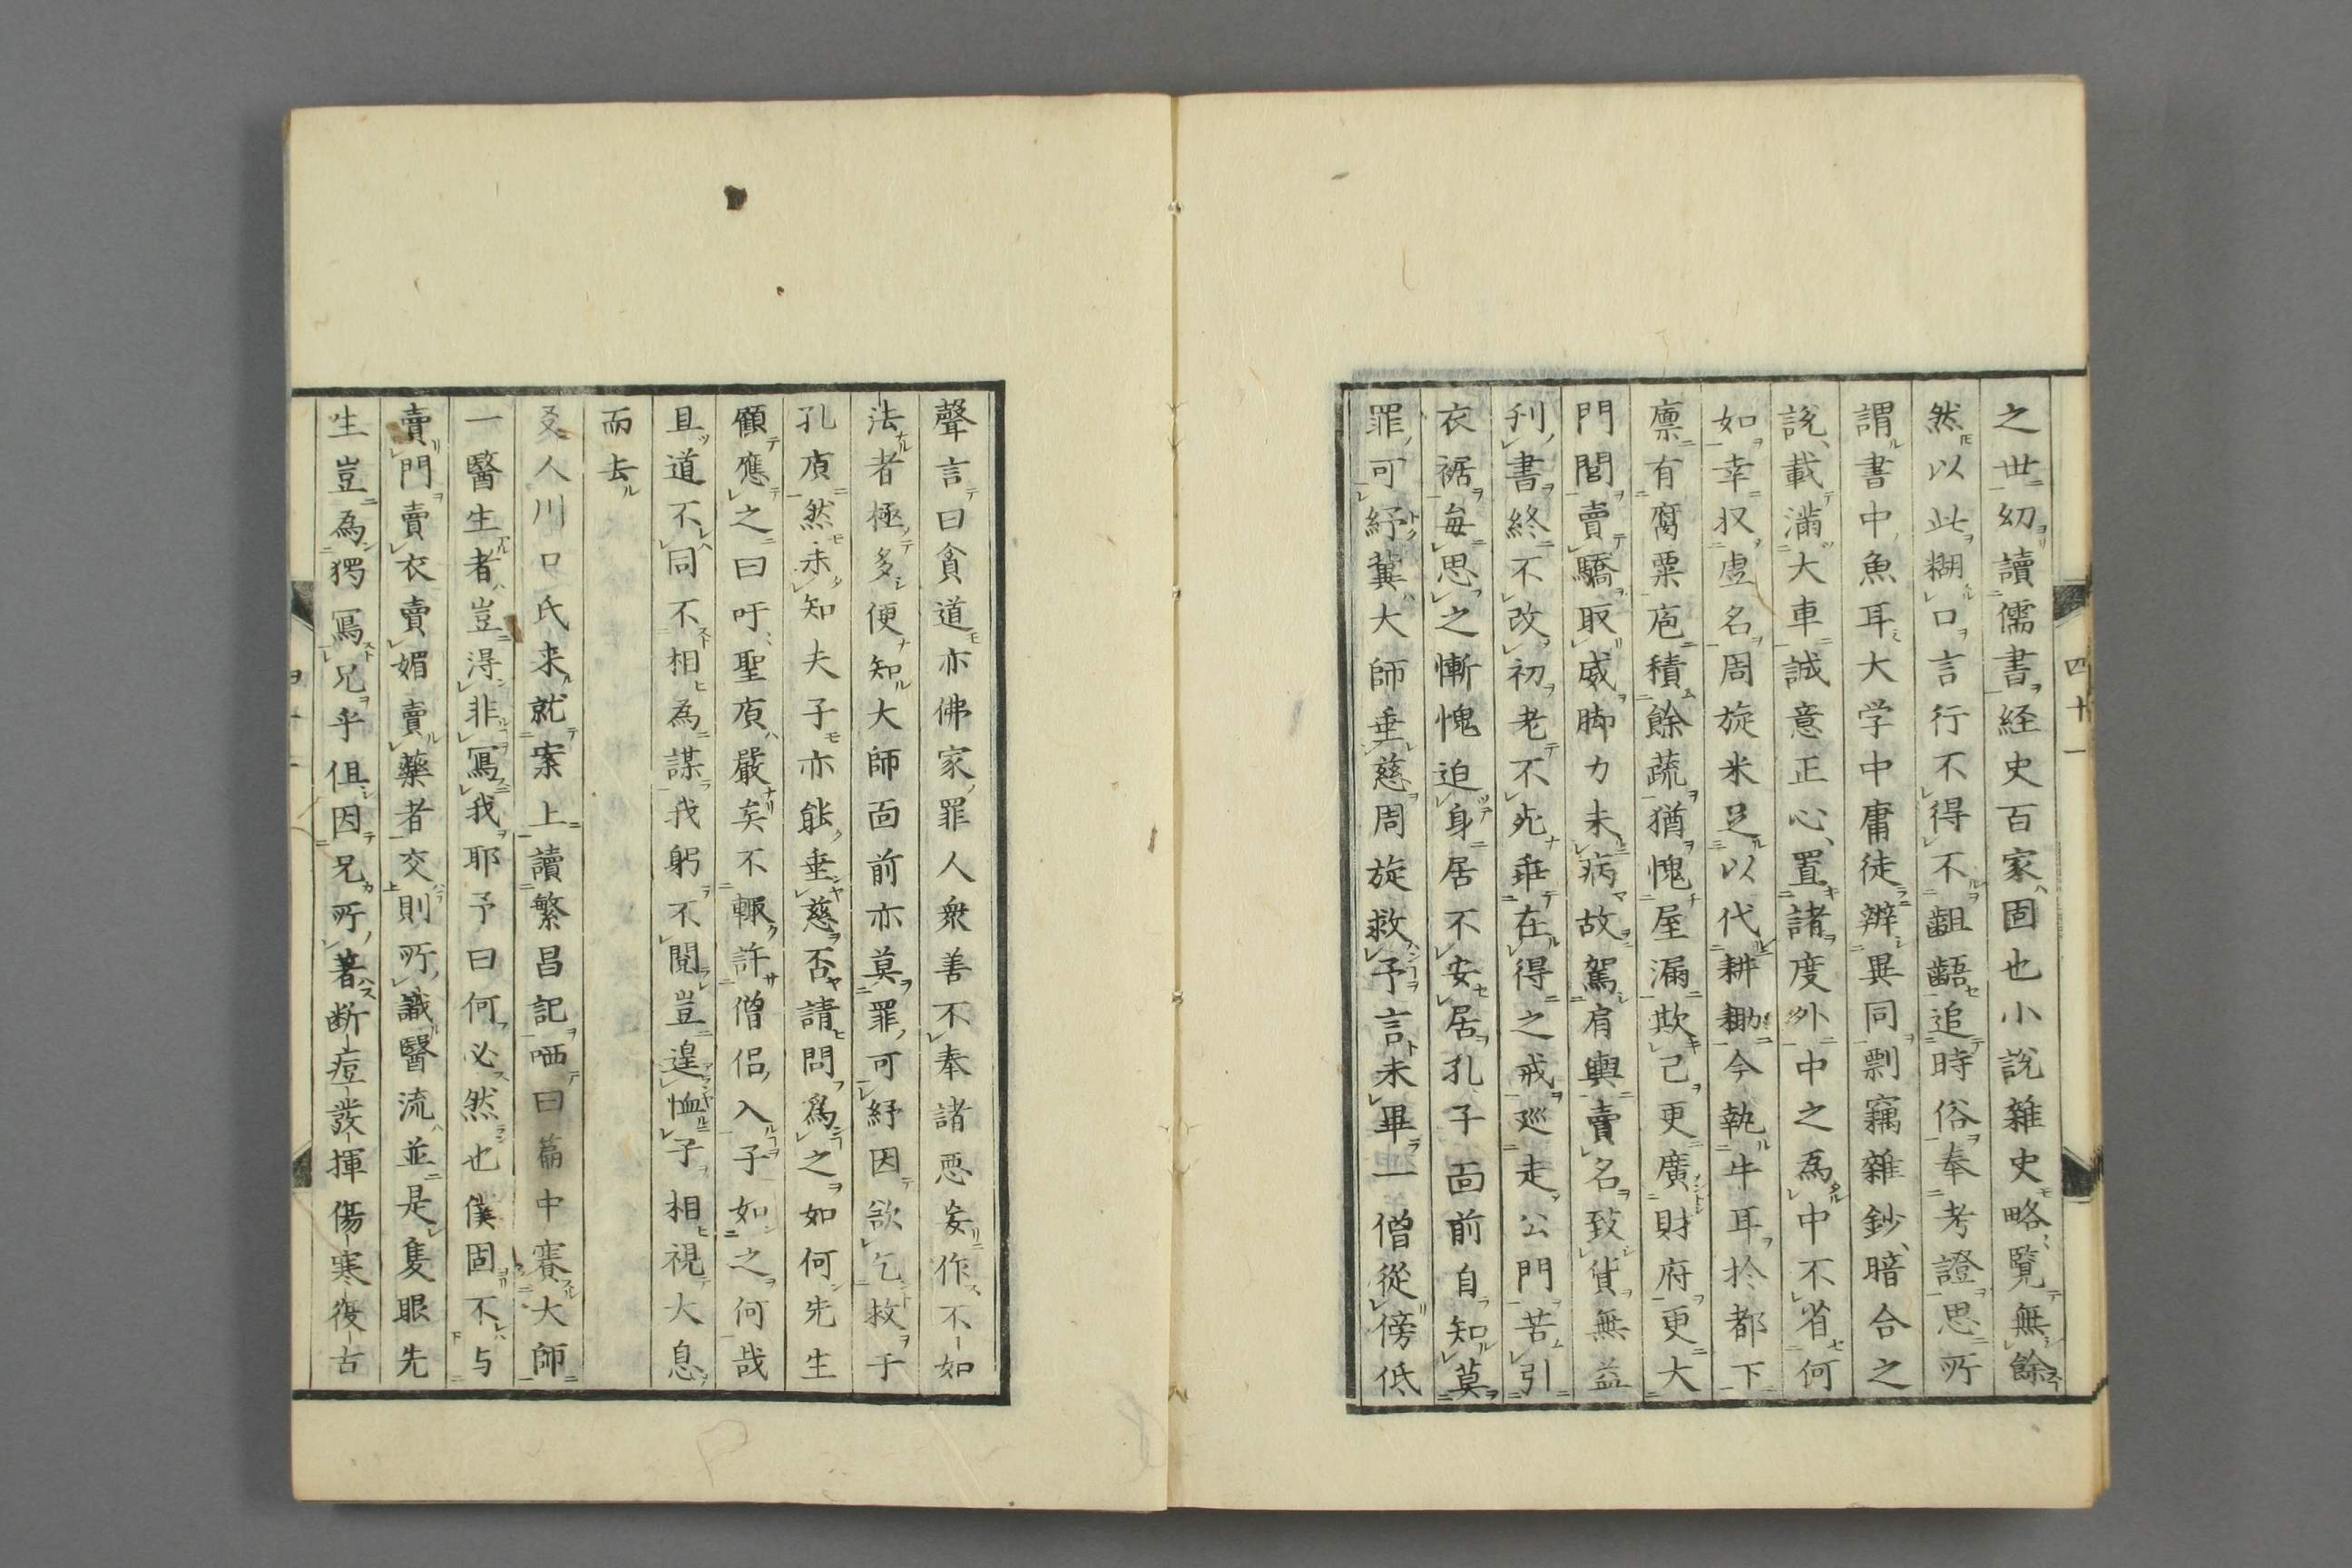 之世幼讀儒書経史百家固也小説雜史略覧無餘
然以此糊口言行不得不齟齬追時俗奉考證思所
謂書中魚耳大学中庸徒辨異同剽竊雜鈔暗合之
説載満大車誠意正心置諸度外中之為中不省何
如幸収虚名周旋米足以代耕耡今執牛耳於都下
廪有腐粟庖積餘蔬猶愧屋漏欺己更廣財府更大
門閭賣驕取威脚力未病故駕肩輿賣名致貨無益
刊書終不改初老不死垂在得之戒巡走公門苦引
衣裾毎思之慚愧迫身居不安居孔子面前自知莫
罪可紓冀大師垂慈周旋救予言未畢一僧從傍低
四十一
聲言曰貪道亦佛家罪人衆善不奉諸悪妄作不如
法者極多便知大師面前亦莫罪可紓因欲乞救于
孔庿然未知夫子亦能垂慈否請問爲之如何先生
顧應之曰吁聖庿嚴矣不輙許僧侶入子如之何哉
且道不同不相為謀我躬不閲豈遑恤子相視大息
而去
友人川口氏来就案上讀繁昌記哂曰篇中賽大師
一醫生者豈得非寫我耶予曰何必然也僕固不与
賣門賣衣賣媚賣藥者交則所識醫流並是隻眼先
生豈為獨寫兄乎但因兄所著断痘発揮傷寒復古